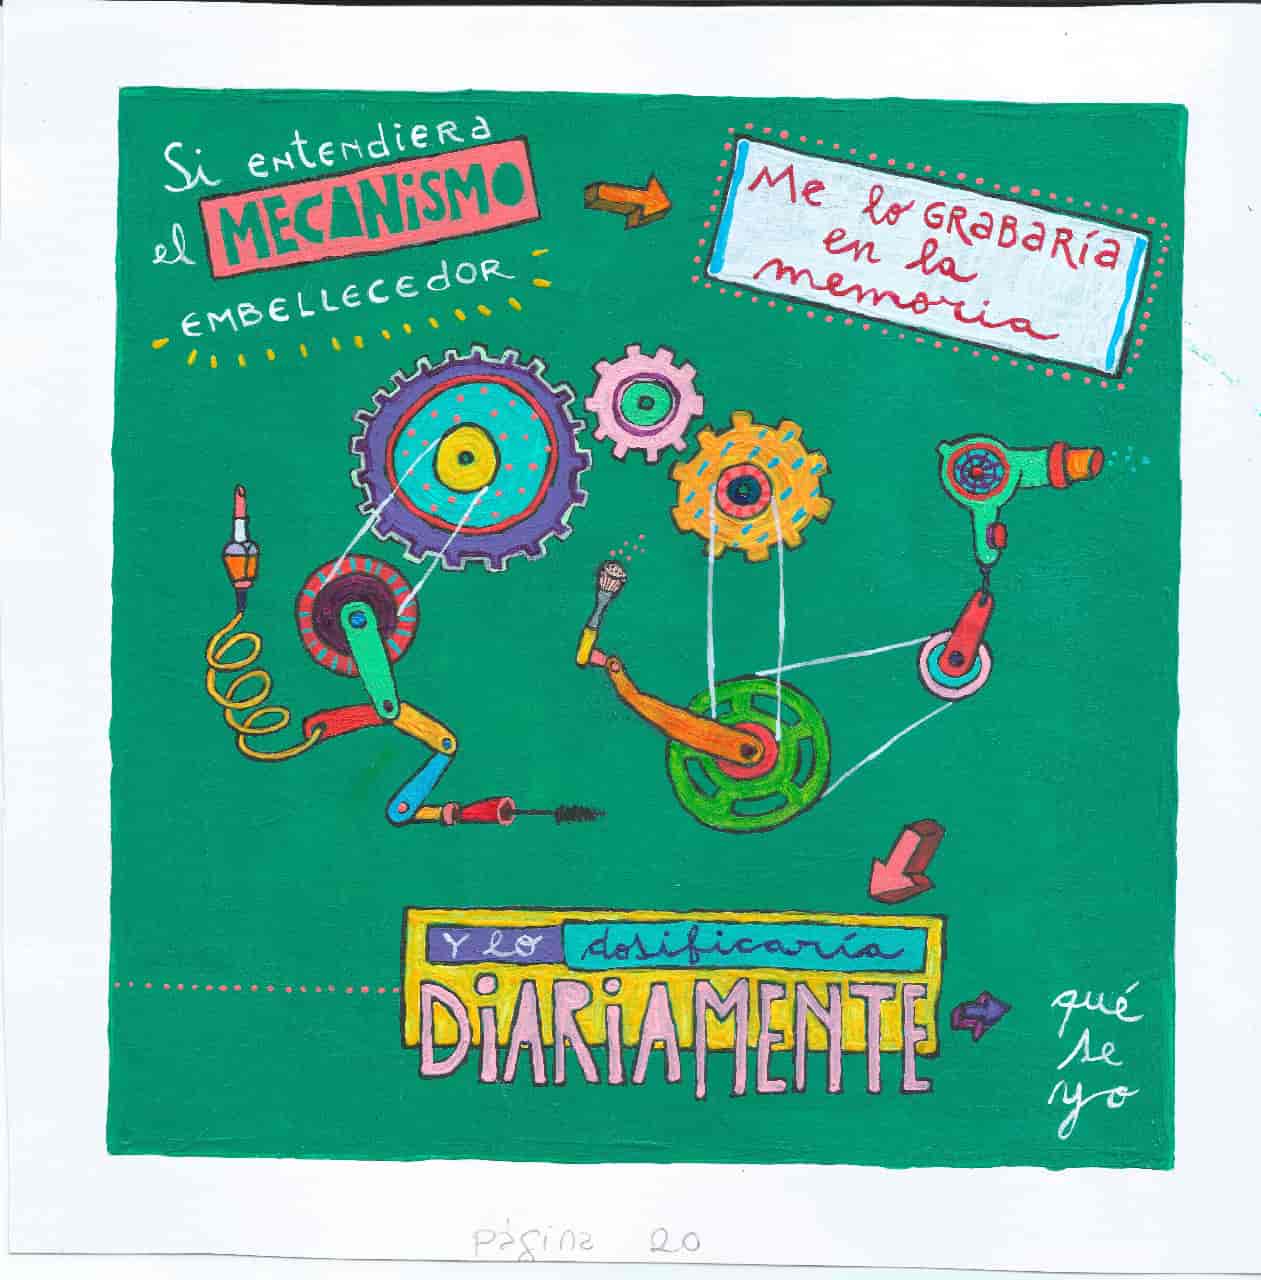 Si entendiera
el MECANiSMO
EMBELLECEdOR
Me lo GRABARÍA
en la
memoria
Y lo dosificaría
DiARiAMENTE
qué
se
yo
página 20